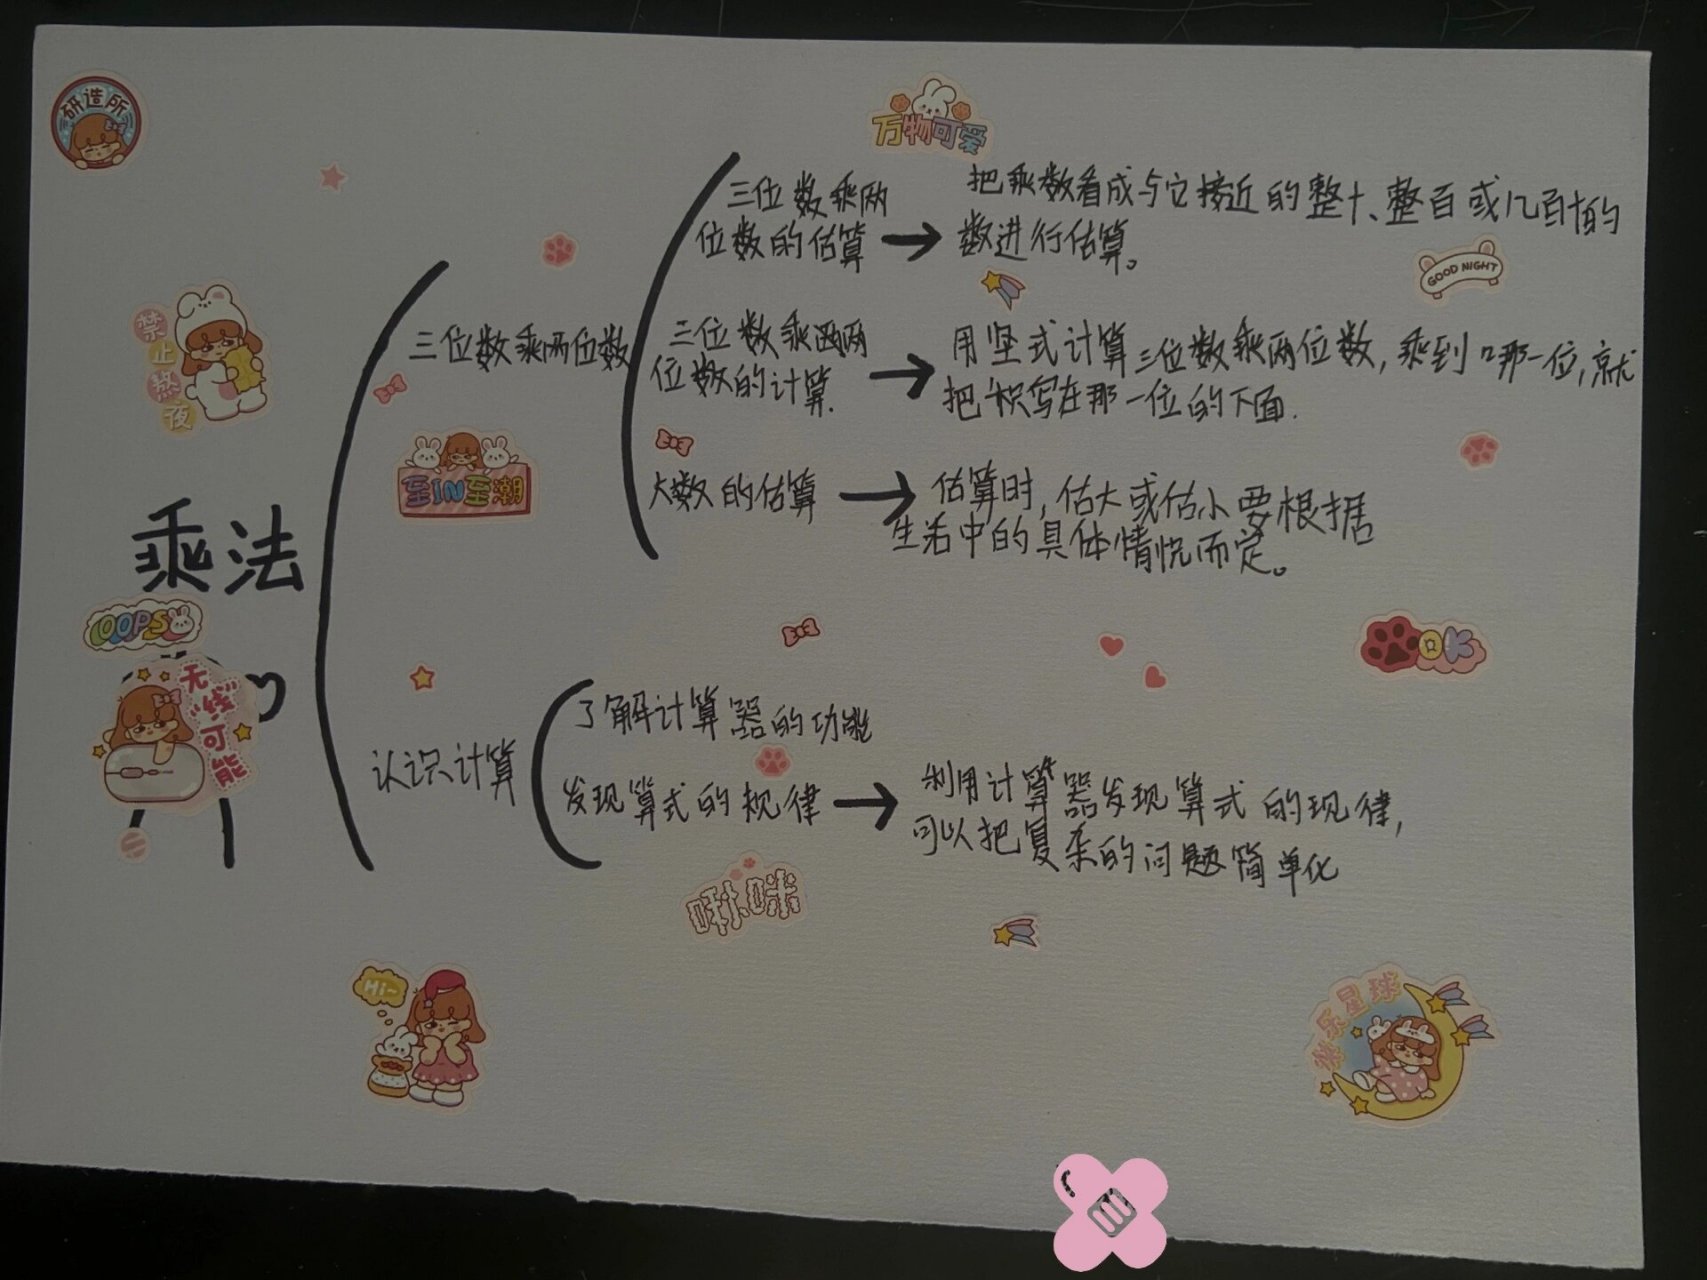 研造所
万物可爱
三位数乘两
位数的估算
把乘数看成与它接近的整十、整百或几百几十的
数进行估算。
GOOD NIGHT
禁止熬夜
三位数乘两位数
三位数乘两
位数的计算.
用竖式计算三位数乘两位数,乘到哪一位,就
把积写在那一位的下面.
至IN至潮
大数的估算
估算时,估大或估小要根据
生活中的具体情况而定。
乘法
OOPS
OK
无"线"可能
了解计算器的功能
认识计算
发现算式的规律
利用计算器发现算式的规律,
可以把复杂的问题简单化
啾咪
Hi~
乐星球